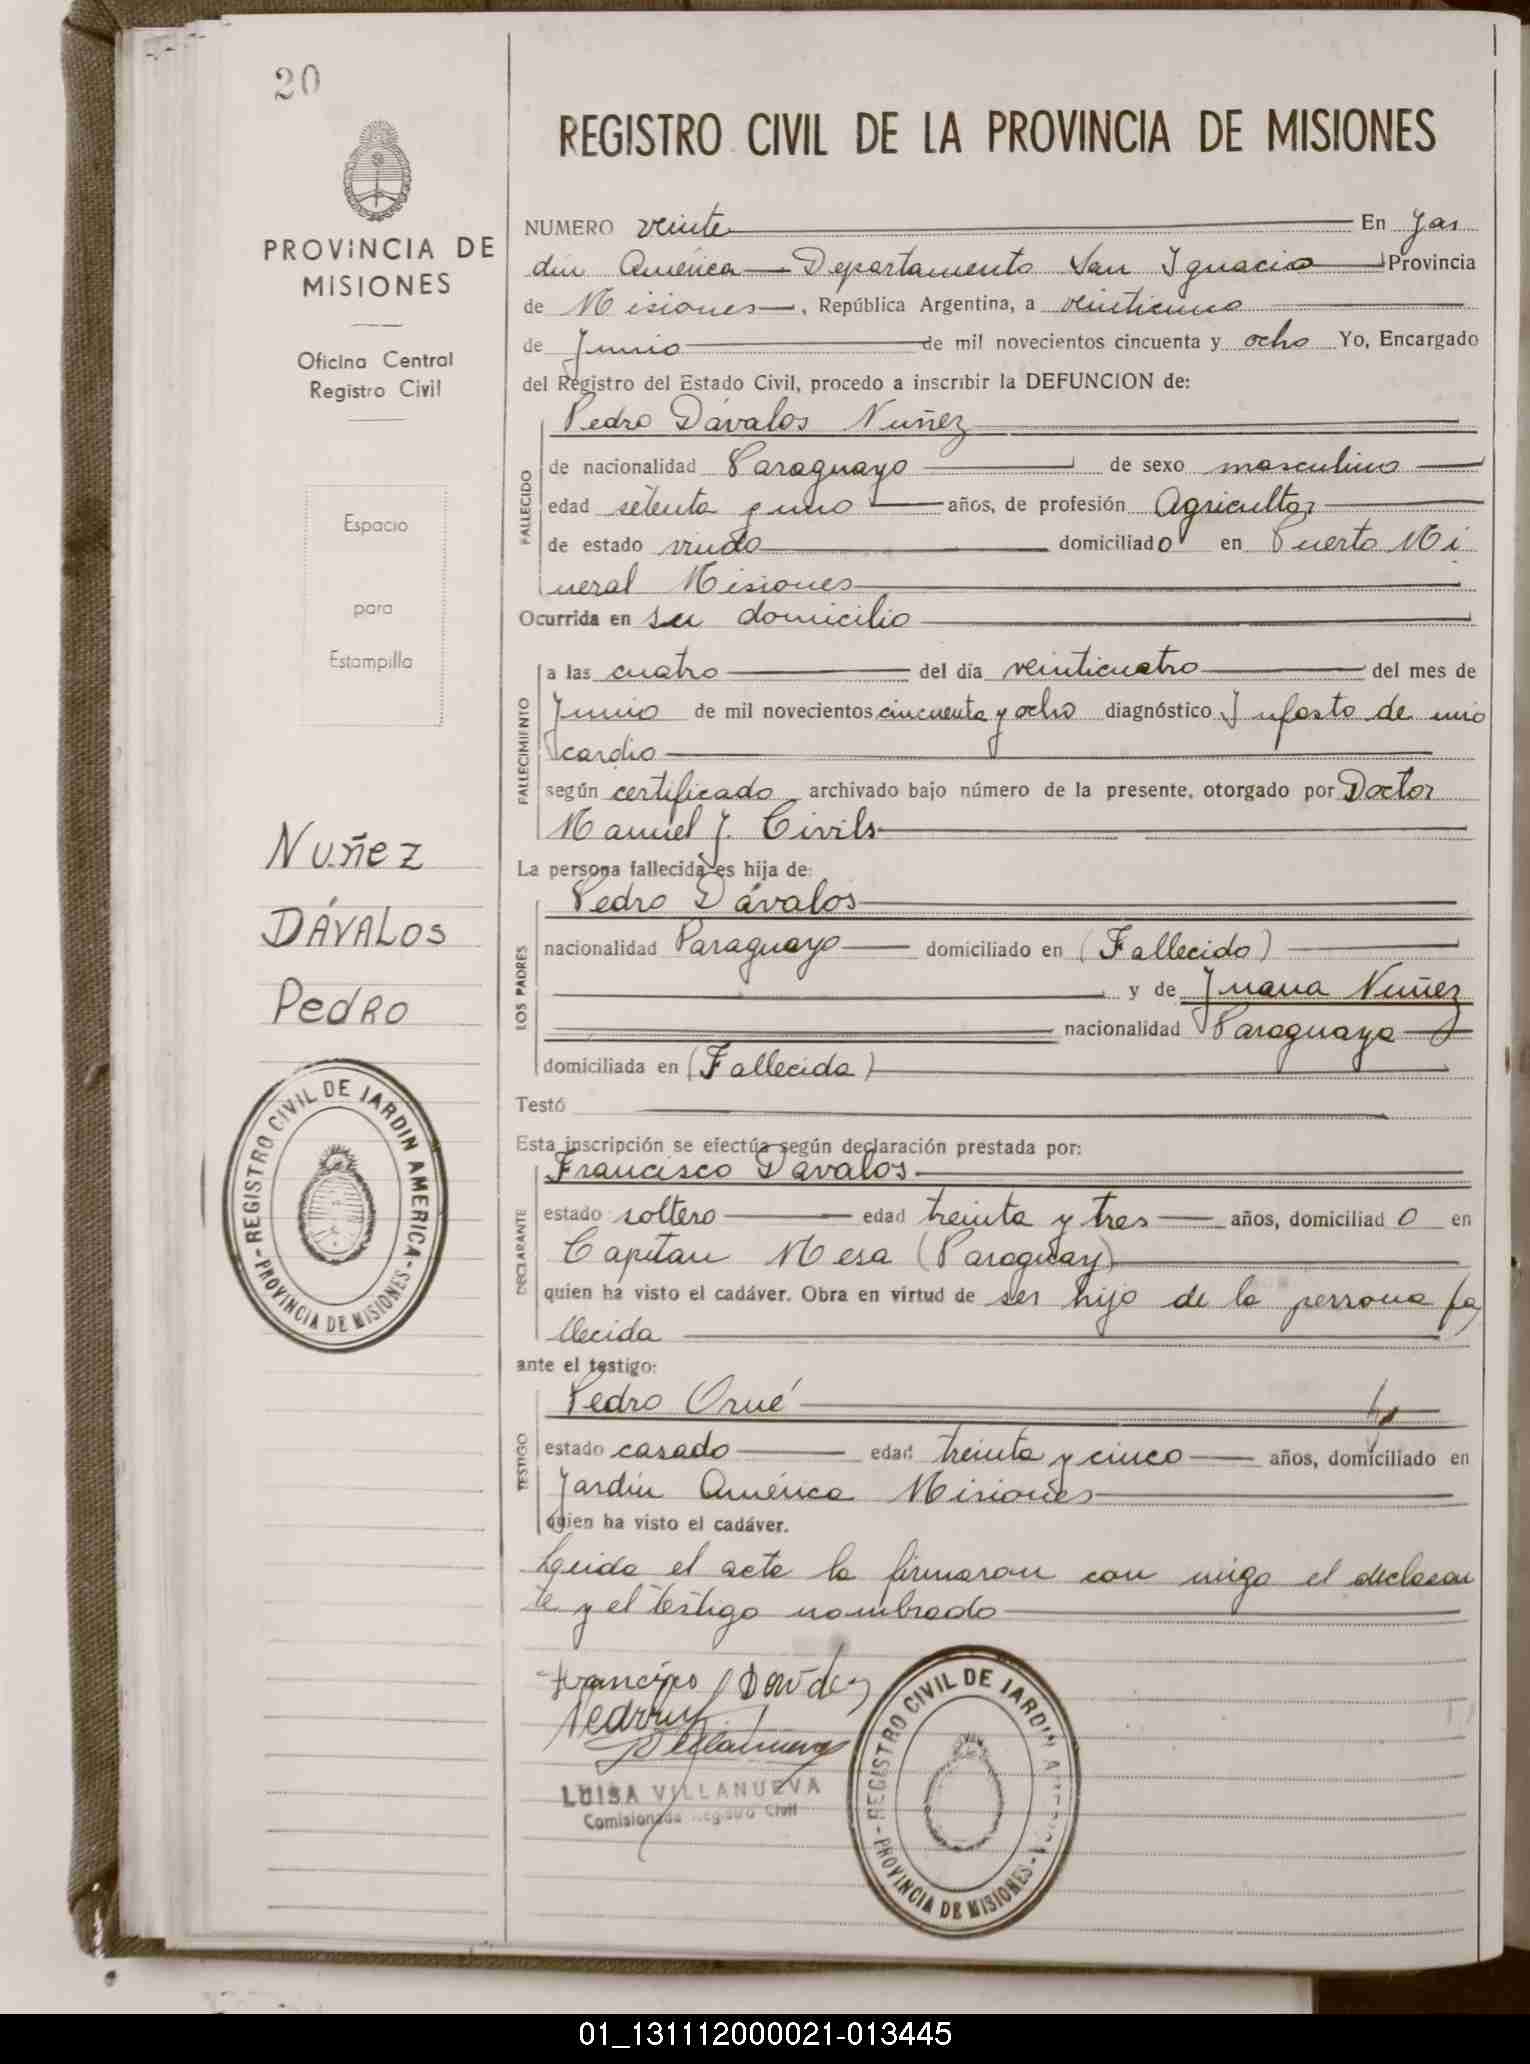 20
PROVINCIA DE
MISIONES
Oficina Central
Registro Civil
Espacio
para
Estampilla
Nuñez
DÁVALOS
Pedro
-REGISTRO CIVIL DE JARDIN AMERICA-
-PROVINCIA DE MISIONES-
REGISTRO CIVIL DE LA PROVINCIA DE MISIONES
NUMERO veinte En Jar
din América Departamento San Ignacio Provincia
de Misiones, República Argentina, a
de Junio de mil novecientos cincuenta y ocho Yo, Encargado
del Registro del Estado Civil, procedo a inscribir la DEFUNCION de:
Pedro Dávalos Nuñez
FALLECIDO
de nacionalidad Paraguayo de sexo masculino
edad setenta y uno años, de profesión Agricultor
de estado viudo domiciliado en Puerto Mi
neral Misiones
Ocurrida en su domicilio
FALLECIMIENTO
a las cuatro del día veinticuatro del mes de
Junio de mil novecientos cincuenta y ocho diagnóstico Infarto de mio
cardio
según certificado archivado bajo número de la presente, otorgado por Doctor
Manuel J. Civils
La persona fallecida es hija de:
Pedro Dávalos
LOS PADRES
nacionalidad Paraguayo domiciliado en (Fallecido)
y de Juana Nuñez
nacionalidad Paraguaya
domiciliada en (Fallecida)
Testó
Esta inscripción se efectúa según declaración prestada por:
Francisco Davalos
DECLARANTE
estado soltero edad treinta y tres años, domiciliado en
Capitan Mesa (Paraguay)
quien ha visto el cadáver. Obra en virtud de ser hijo de la persona fa
llecida
ante el testigo:
Pedro Orué
TESTIGO
estado casado edad treinta y cinco años, domiciliado en
Jardín América Misiones
quien ha visto el cadáver.
Leida el acta la firmaron con migo el declaran
te y el testigo nombrado
LUISA VILLANUEVA
Comisionada Registro Civil
-REGISTRO CIVIL DE JARDIN AMERICA-
-PROVINCIA DE MISIONES-
01_131112000021-013445